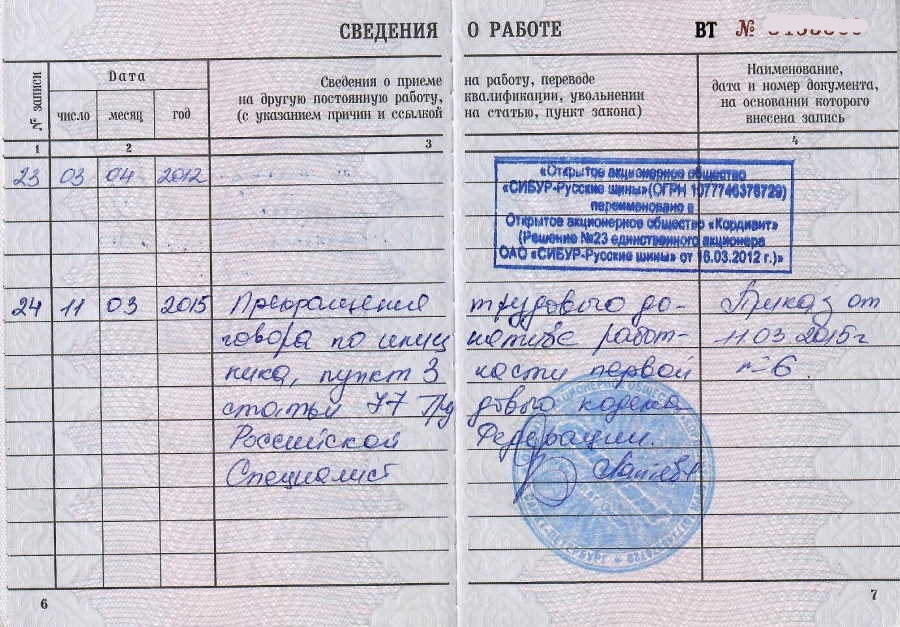 СВЕДЕНИЯ О РАБОТЕ
ВТ №
№ записи
Дата
число месяц год
Сведения о приеме на работу, переводе
на другую постоянную работу, квалификации, увольнении
(с указанием причин и ссылкой на статью, пункт закона)
Наименование,
дата и номер документа,
на основании которого
внесена запись
1 2 3 4
23 03 04 2012
«Открытое акционерное общество
«СИБУР-Русские шины»(ОГРН 1077746376729)
переименовано в
Открытое акционерное общество «Кордиант»
(Решение №23 единственного акционера
ОАО «СИБУР-Русские шины» от 16.03.2012 г.)»
24 11 03 2015 Прекращение трудового до- Приказ от
говора по иниц иативе работ- 11.03.2015г
ника, пункт 3 части первой №6
статьи 77 Тру дового кодекса
Российской Федерации.
Специалист
6 7